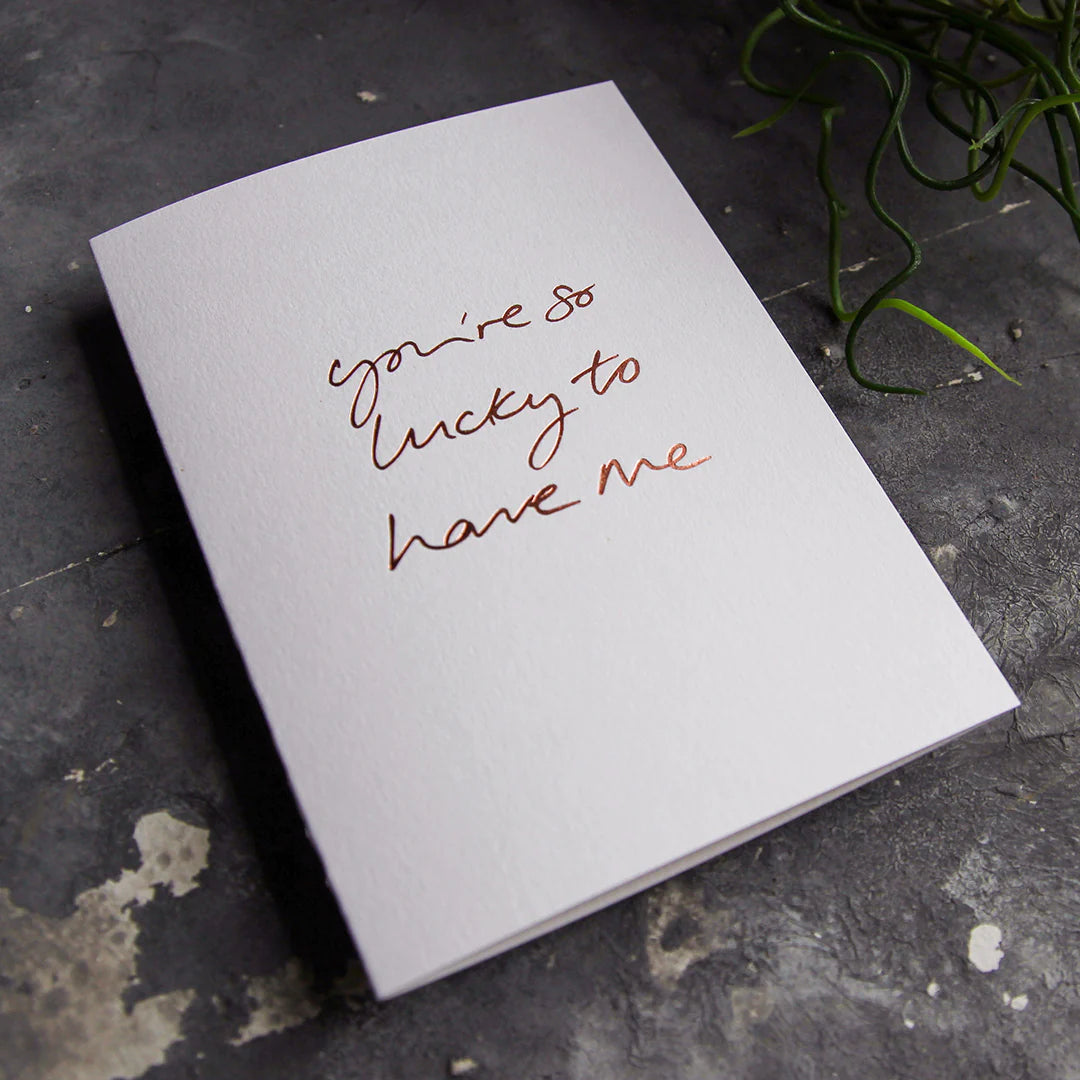 you're so
lucky to
have me